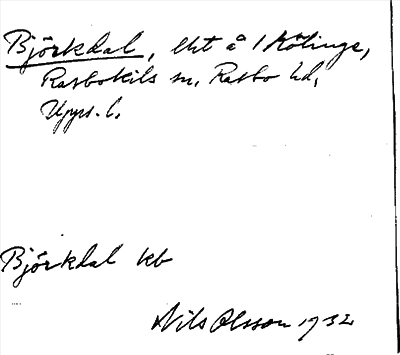 Björkdal, lht å 1 Kölinge,
Rasbokils sn, Rasbo hd,
Upps. l.
Björkdal kb
Nils Olsson 1932